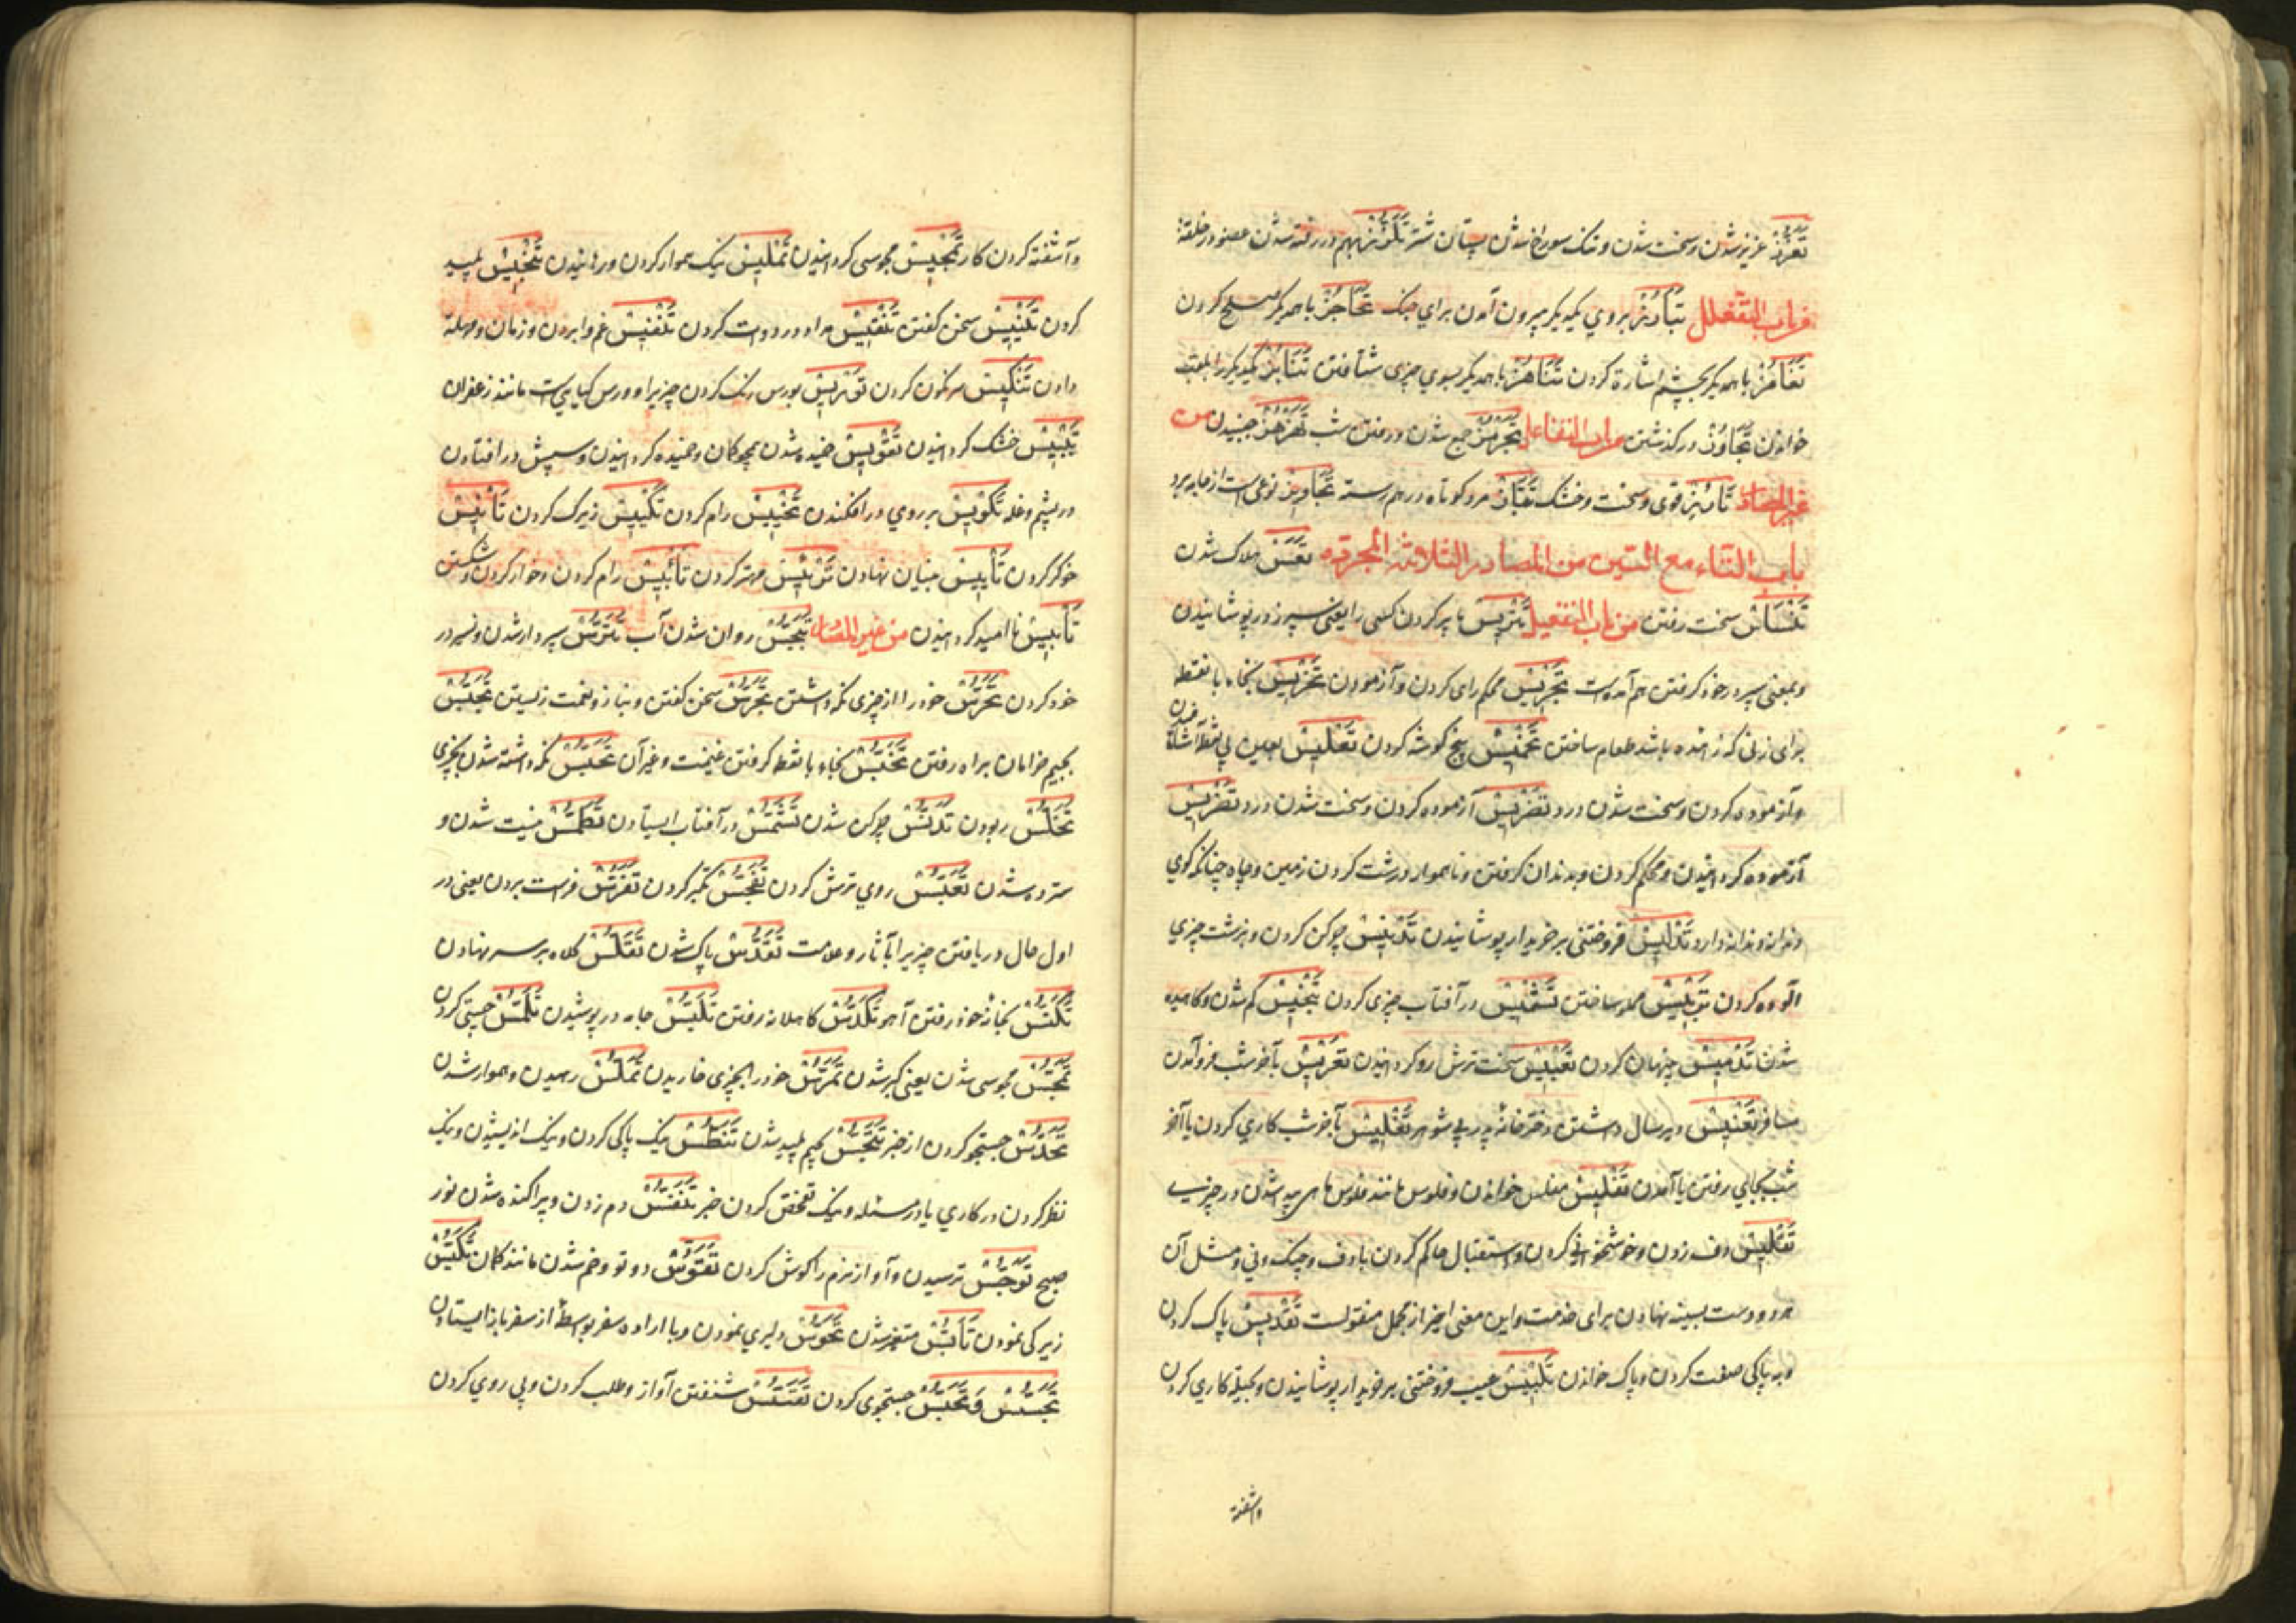 تَعَزُّز عزیز شدن و سخت شدن و تنک سوراخ شدن پستان شتر تَلَزُّز بهم در رفته شدن عضو در خلقة
تَبارُز بروی یکدیگر بیرون آمدن برای جنک تَحاجُز با همدیگر صلح کردن
تَغامُز با همدیگر بچشم اشارة کردن تَناهُز با همدیگر بسوی چیزی شتافتن تَنابُز یکدیگر را بلقب
خواندن تَجاوُز در گذشتن تَجَرمُز جمع شدن و رفتن شب تَهَزهُز جنبیدن من
غیر المصادر قوی و سخت و خشک مرد کوتاه درهم رسته نوعی است از جامه برد
باب التاء مع السین من المصادر الثلاثة المجرده تَعس هلاک شدن
سخت رفتن من باب التفعیل تَتریس با پر کردن کسی را یعنی سپر در پوشانیدن
و بمعنی سپر در خود کرفتن هم آمده است تَجریس محکم رای کردن و آزمودن تَخریس بخاء با نقطه
برای زنی که زاینده باشد طعام ساختن تَخمیس پنج کوشه کردن
و آزموده کردن و سخت شدن درد تَضریس آزموده کردن و سخت شدن درد تَضریس
آزموده کردانیدن و محکم کردن و بدندان کرفتن و ناهموار و درشت کردن زمین و چاه چنانکه کوی
دندانه دندانه دارد تَدلیس فروختنی بر خریدار پوشانیدن تَدنیس چرکن کردن و بزشت چیزی
آلوده کردن ساختن تَشمیس در آفتاب چیزی کردن تَبخیس کم شدن و کاهیده
شدن تَدمیس پنهان کردن تَعبیس سخت ترش رو کردانیدن تَعریس بآخر شب فرو آمدن
مسافر تَعنیس دیر سال داشتن دختر خانه پدر بی شوهر تَغلیس بآخر شب کاری کردن یا آخر
شب بجایی رفتن یا آمدن تَفلیس مفلس خواندن و فلوس مانند فلوس ماهی پیدا شدن در چیزی
تَقلیس دف زدن و خوشخوانی کردن و استقبال حاکم کردن با دف و چنک و نی و مثل آن
و دو دست بسینه نهادن برای خدمت و این معنی اخیر از مجمل منقولست تَقدیس پاک کردن
و به پاکی صفت کردن و پاک خواندن تَلبیس عیب فروختنی بر خریدار پوشانیدن و بحیله کاری کردن
و آشفته
و آشفته کردن کار تَمجیس مجوسی کردانیدن تَملیس نیک هموار کردن و رهانیدن تَنجیس پلید
کردن سخن کفتن تَنفیس غم وا بردن و زمان و مهلة
دادن تَنکیس سرنکون کردن تَوریس بورس رنک کردن چیزیرا و ورس کیاهی است مانند زعفران
تَیبیس خشک کردانیدن تَقویس خمیده شدن همچو کمان و خمیده کردانیدن و سپش در افتادن
در پشم و غله تَکویس بر روی در افکندن تَخییس رام کردن تَکییس زیرک کردن تَأنیس
خوکر کردن تَأسیس بنیان نهادن تَرئیس مهتر کردن تَأبیس رام کردن و خوار کردن و شکستن
نا امید کردانیدن من غیر المصادر تَبَجُّس روان شدن آب تَتَرُّس سپر دار شدن و سپر در
خود کردن تَحَرُّس خود را از چیزی نکه داشتن تَجَرُّس سخن کفتن و بناز و نعمت زیستن
بجیم خرامان براه رفتن بخاء با نقطه کرفتن غنیمت و غیر آن تَحَبُّس نکه داشته شدن بچیزی
تَخَلُّس ربودن تَدَنُّس چرکن شدن تَشَمُّس در آفتاب ایستادن تَطَمُّس نیست شدن و
سترده شدن تَعَبُّس روی ترش کردن تَفَجُّس تکبر کردن تَفَرُّس فراست بردن یعنی در
اول حال دریافتن چیزیرا بآثار و علامت تَقَدُّس پاک شدن تَقَلُّس کلاه بر سر نهادن
تَکَنُّس بخانه خود رفتن آهو تَکَدُّس کاهلانه رفتن تَلَبُّس جامه در پوشیدن تَلَمُّس جستن کردن
تَمَجُّس مجوسی شدن یعنی کبر شدن تَمَرُّس خود را بچیزی خاریدن تَمَلُّس رهیدن و هموار شدن
تَحَدُّس جستجو کردن از خبر تَنَجُّس بجیم پلید شدن تَنَطُّس نیک پاکی کردن و نیک اندیشیدن و نیک
نظر کردن در کاری یا در مسئله و نیک تفحص کردن خبر تَنَفُّس دم زدن و پراکنده شدن نور
صبح تَوَجُّس ترسیدن و آواز نرم را کوش کردن تَقَوُّس دو تو و خم شدن مانند کمان تَکَیُّس
زیرکی نمودن متغیر شدن دلیری نمودن و با اراده سفر بواسطه از سفر باز ایستادن
تَجَسُّس و تَحَسُّس جستجوی کردن تَقَسُّس شنفتن آواز و طلب کردن و پی روی کردن